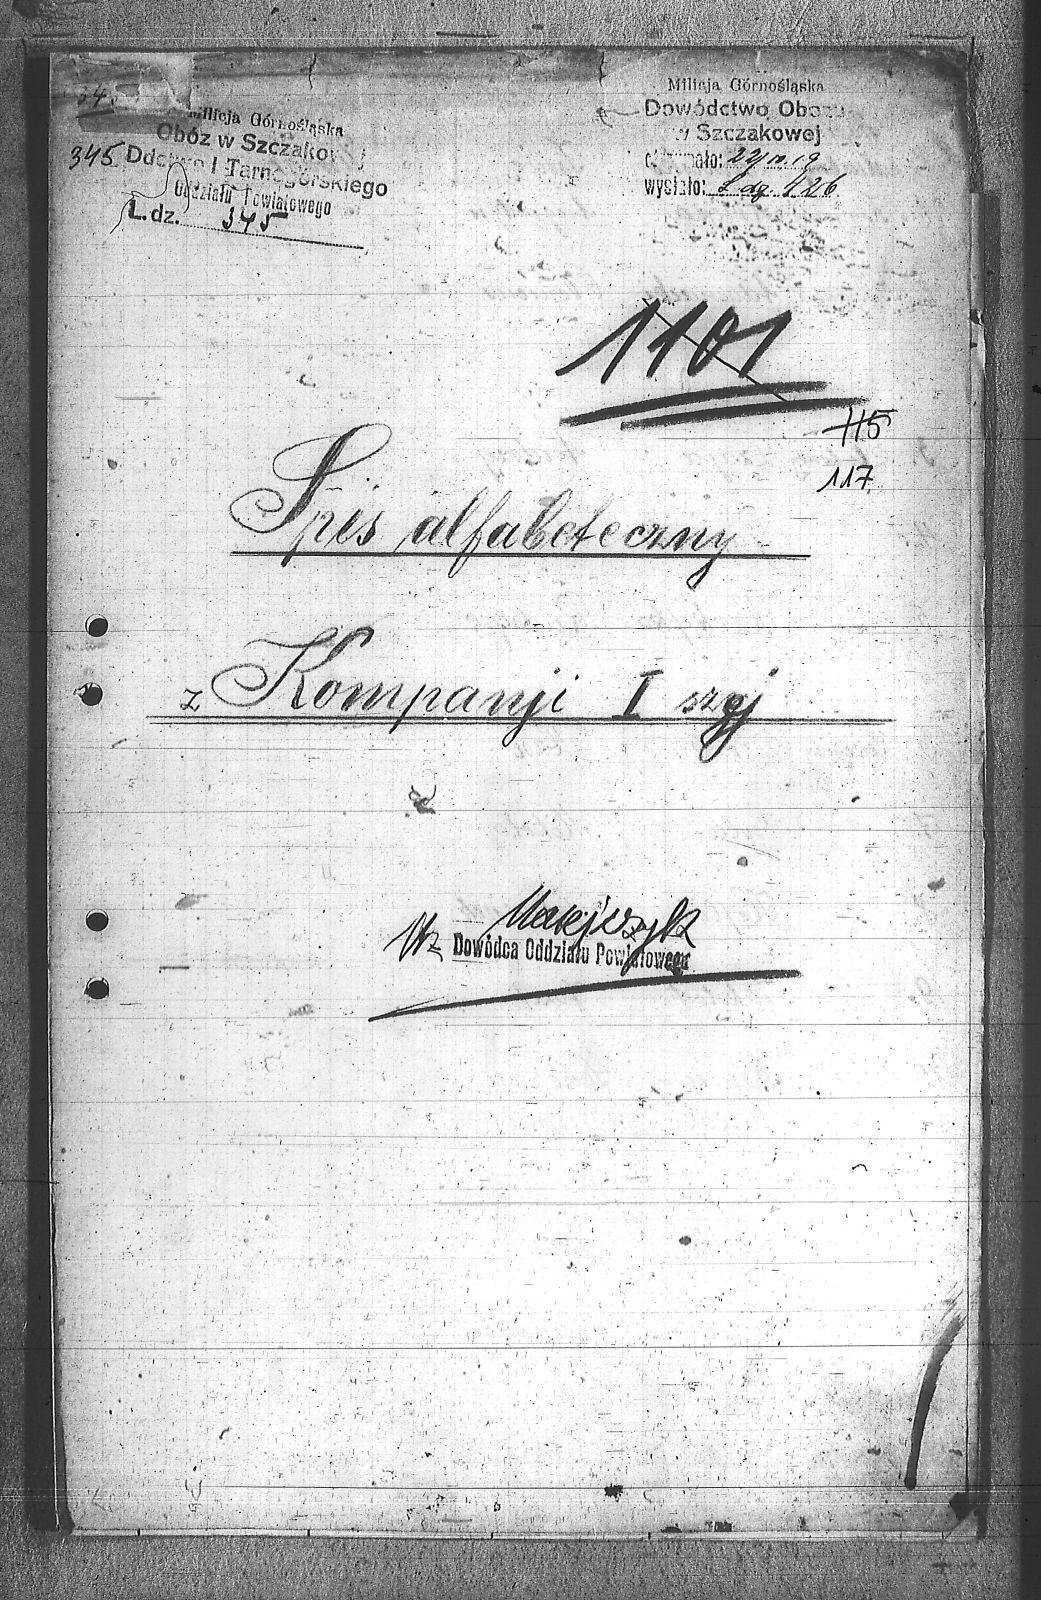 345
Milicja Górnośląska
Obóz w Szczakowej
345 Ddctwo I Tarnogórskiego
Oddziału Powiatowego
L. dz. 345
Milicja Górnośląska
Dowództwo Obozu
w Szczakowej
otrzymało: 22/10.19
wysłało: L. dz. 426
1101
115
117.
Spis alfabeteczny
z Kompanji I szej
Matejczyk
Dowódca Oddziału Powiatowego